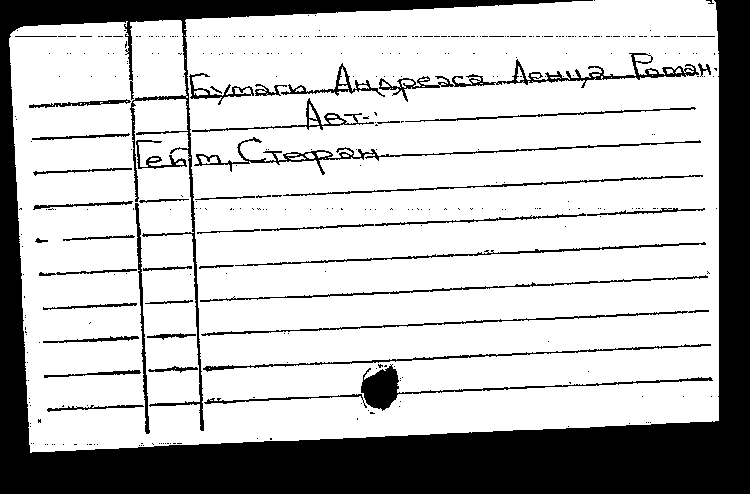 Бумаги Андреаса Ленца. Роман.
Авт.:
Гейм, Стефан